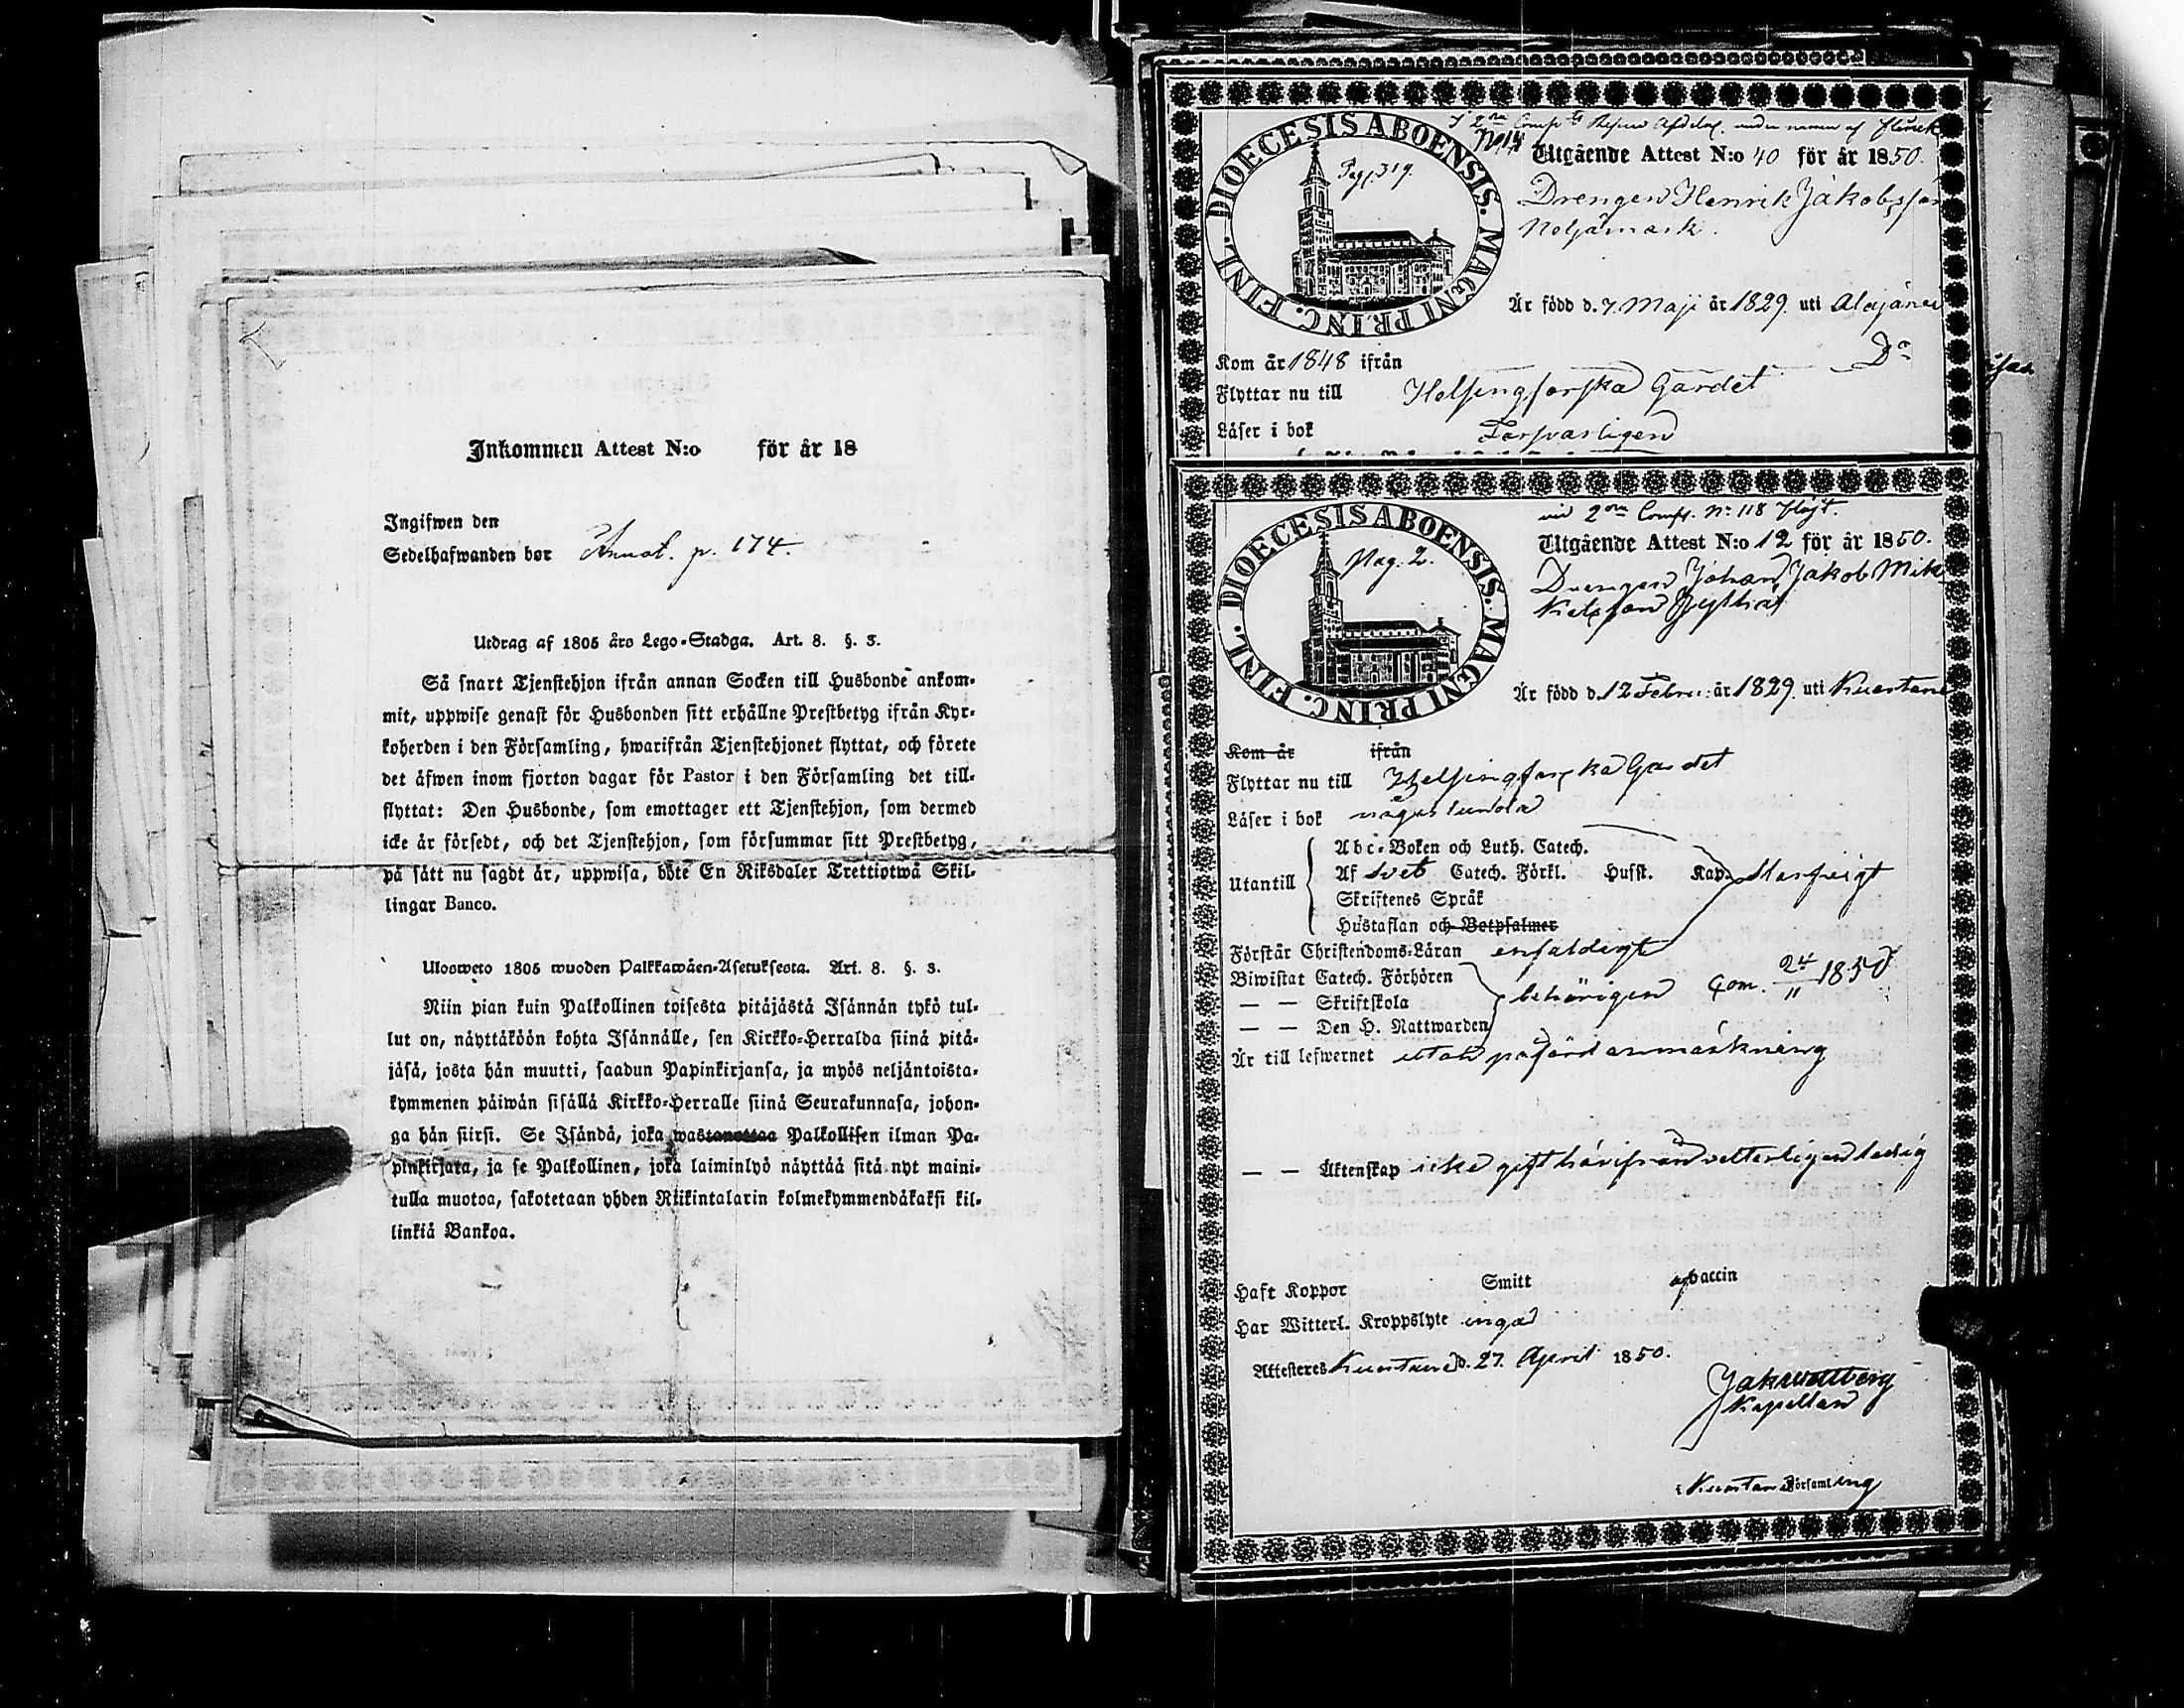 Inkommen Attest N:o för år 18
Ingifwen den
Sedelhafwanden bor Annot. p. 174.
Utdrag af 1805 års Lego-Stadga. Art. 8. §. 3.
Så snart Tjenstehjon ifrån annan Socken till Husbonde ankom-
mit, uppwise genast för Husbonden sitt erhållne Prestbetyg ifrån Kyr-
koherden i den Församling, hwarifrån Tjenstehjonet flyttat, och förete
det äfwen inom fjorton dagar för Pastor i den Församling det till-
flyttat: Den Husbonde, som emottager ett Tjenstehjon, som dermed
icke är försedt, och det Tjenstehjon, som försummar sitt Prestbetyg,
på sätt nu sagdt är, uppwisa, böte En Riksdaler Trettiotwå Skil-
lingar Banco.
Uloswcto 1805 wuoden Palkkawäen-Asetuksesta. Art. 8. §. 3.
Niin pian kuin Palkollinen toisesta pitäjästä Isännän tykö tul-
lut on, näyttäköön kohta Isännälle, sen Kirkko-Herralda siinä pitä-
jäsä, josta hän muutti, saadun Papinkirjansa, ja myös neljäntoista-
kymmenen päiwän sisällä Kirkko-Herralle siinä Seurakunnasa, johon-
ga hän siirsi. Se Isändä, joka wastanottaa Palkollisen ilman Pa-
pinkirjata, ja se Palkollinen, joka laiminlyö näyttää sitä nyt maini-
tulla muotoa, sakotetaan yhden Riikintalarin kolmekymmendäkaksi kil-
linkiä Bankoa.
DIOECESIS ABOENSIS. MAGNI PRINC. FINL.
Pag. 319.
2ra Comp. under namn af
Utgående Attest N:o 40 för år 1850.
Drengen Henrik Jakobsson
Neljämark.
Är född d. 7. Maji år 1829. uti Alajärvi
Kom år 1848 ifrån Do
Flyttar nu till Helsingforska Gardet
Läser i bok Försvarligen
DIOECESIS ABOENSIS. MAGNI PRINC. FINL.
Pag. 2.
vid 2ra Comp. No 118 Höjt.
Utgående Attest N:o 12 för år 1850.
Drengen Johan Jakob Mik
kelsson
Är född d. 12 Febru: år 1829. uti Kuortane
Kom år ifrån
Flyttar nu till Helsingforska Gardet
Läser i bok någorlunda
Utantill
Abc-Boken och Luth. Catech.
Af Sveb Catech. Förkl. Husst. Kap.
Skriftenes Språk
Hustaflan och Botpsalmer
Förstår Christendoms-Läran enfaldigt
Biwistat Catech. Förhören
— — Skriftskola behörigen Com. 24/11 1850
— — Den H. Nattwarden
Är till lefwernet utan påförd anmärkning
— — Äktenskap icke gift härifrån vetterligen ledig
Haft Koppor Smitt af vaccin
Har Witterl. Kroppslyte inga
Attesteres Kuortane d. 27. April 1850.
Jak
Kapellan
i Kuortane Församling